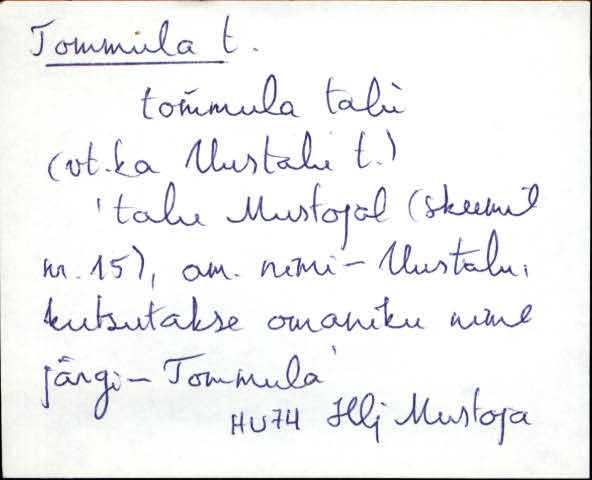 Tommula t.
tom̆mula talù
(vt. ka Uustalu t.)
'talu Mustojal (skeemil
nr. 15), am. nimi – Uustalu,
kutsutakse omaniku nime
järgi – Tommula'
HU74 Hlj Mustoja